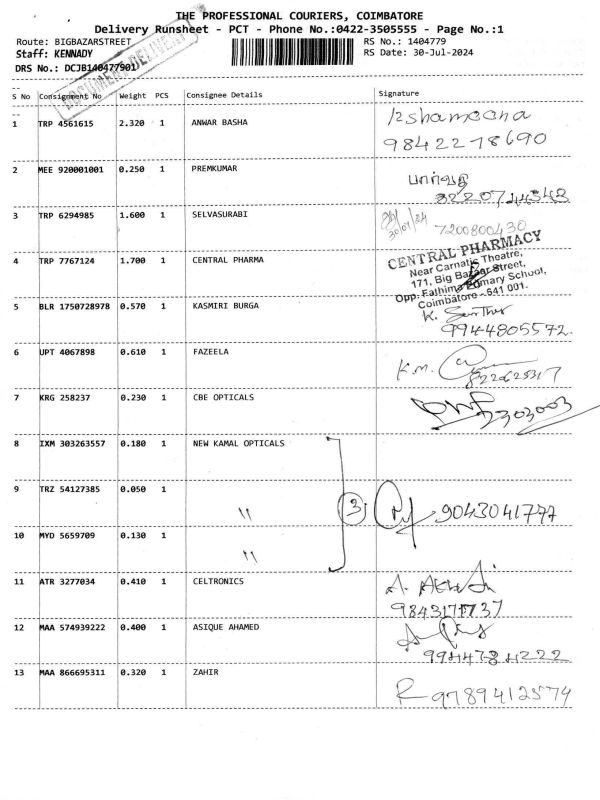 THE PROFESSIONAL COURIERS, COIMBATORE
Delivery Runsheet - PCT - Phone No.:0422-3505555 - Page No.:1
Route: BIGBAZARSTREET RS No.: 1404779
Staff: KENNADY RS Date: 30-Jul-2024
DRS No.: DCJB140477901
S No Consignment No Weight PCS Consignee Details Signature
1 TRP 4561615 2.320 1 ANWAR BASHA
9842278690
2 MEE 920001001 0.250 1 PREMKUMAR
8220744343
3 TRP 6294985 1.600 1 SELVASURABI 30/07/24 7200800430
4 TRP 7767124 1.700 1 CENTRAL PHARMA
CENTRAL PHARMACY
Near Carnatic Theatre,
171, Big Bazaar Street,
Opp. Fathima Primary School,
Coimbatore - 641 001.
5 BLR 1750728978 0.570 1 KASMIRI BURGA K.
9944805572
6 UPT 4067898 0.610 1 FAZEELA K.M.
7 KRG 258237 0.230 1 CBE OPTICALS
8 IXM 303263557 0.180 1 NEW KAMAL OPTICALS
9 TRZ 54127385 0.050 1 " 3 9043041777
10 MYD 5659709 0.130 1 "
11 ATR 3277034 0.410 1 CELTRONICS
12 MAA 574939222 0.400 1 ASIQUE AHAMED
9944784222
13 MAA 866695311 0.320 1 ZAHIR
R 9789412574